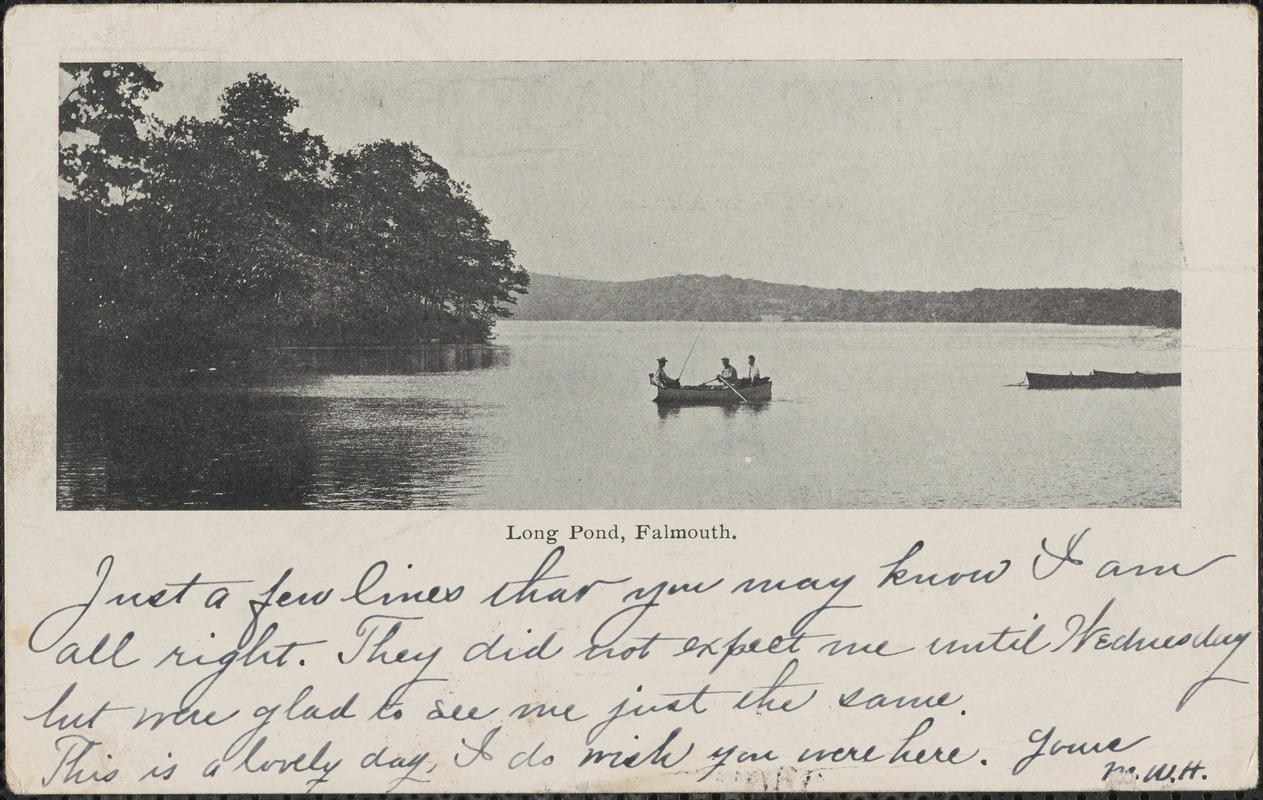 Long Pond, Falmouth.
Just a few lines that you may know I am
all right. They did not expect me until Wednesday
but were glad to see me just the same.
This is a lovely day, I do wish you were here. Yours
M.W.H.